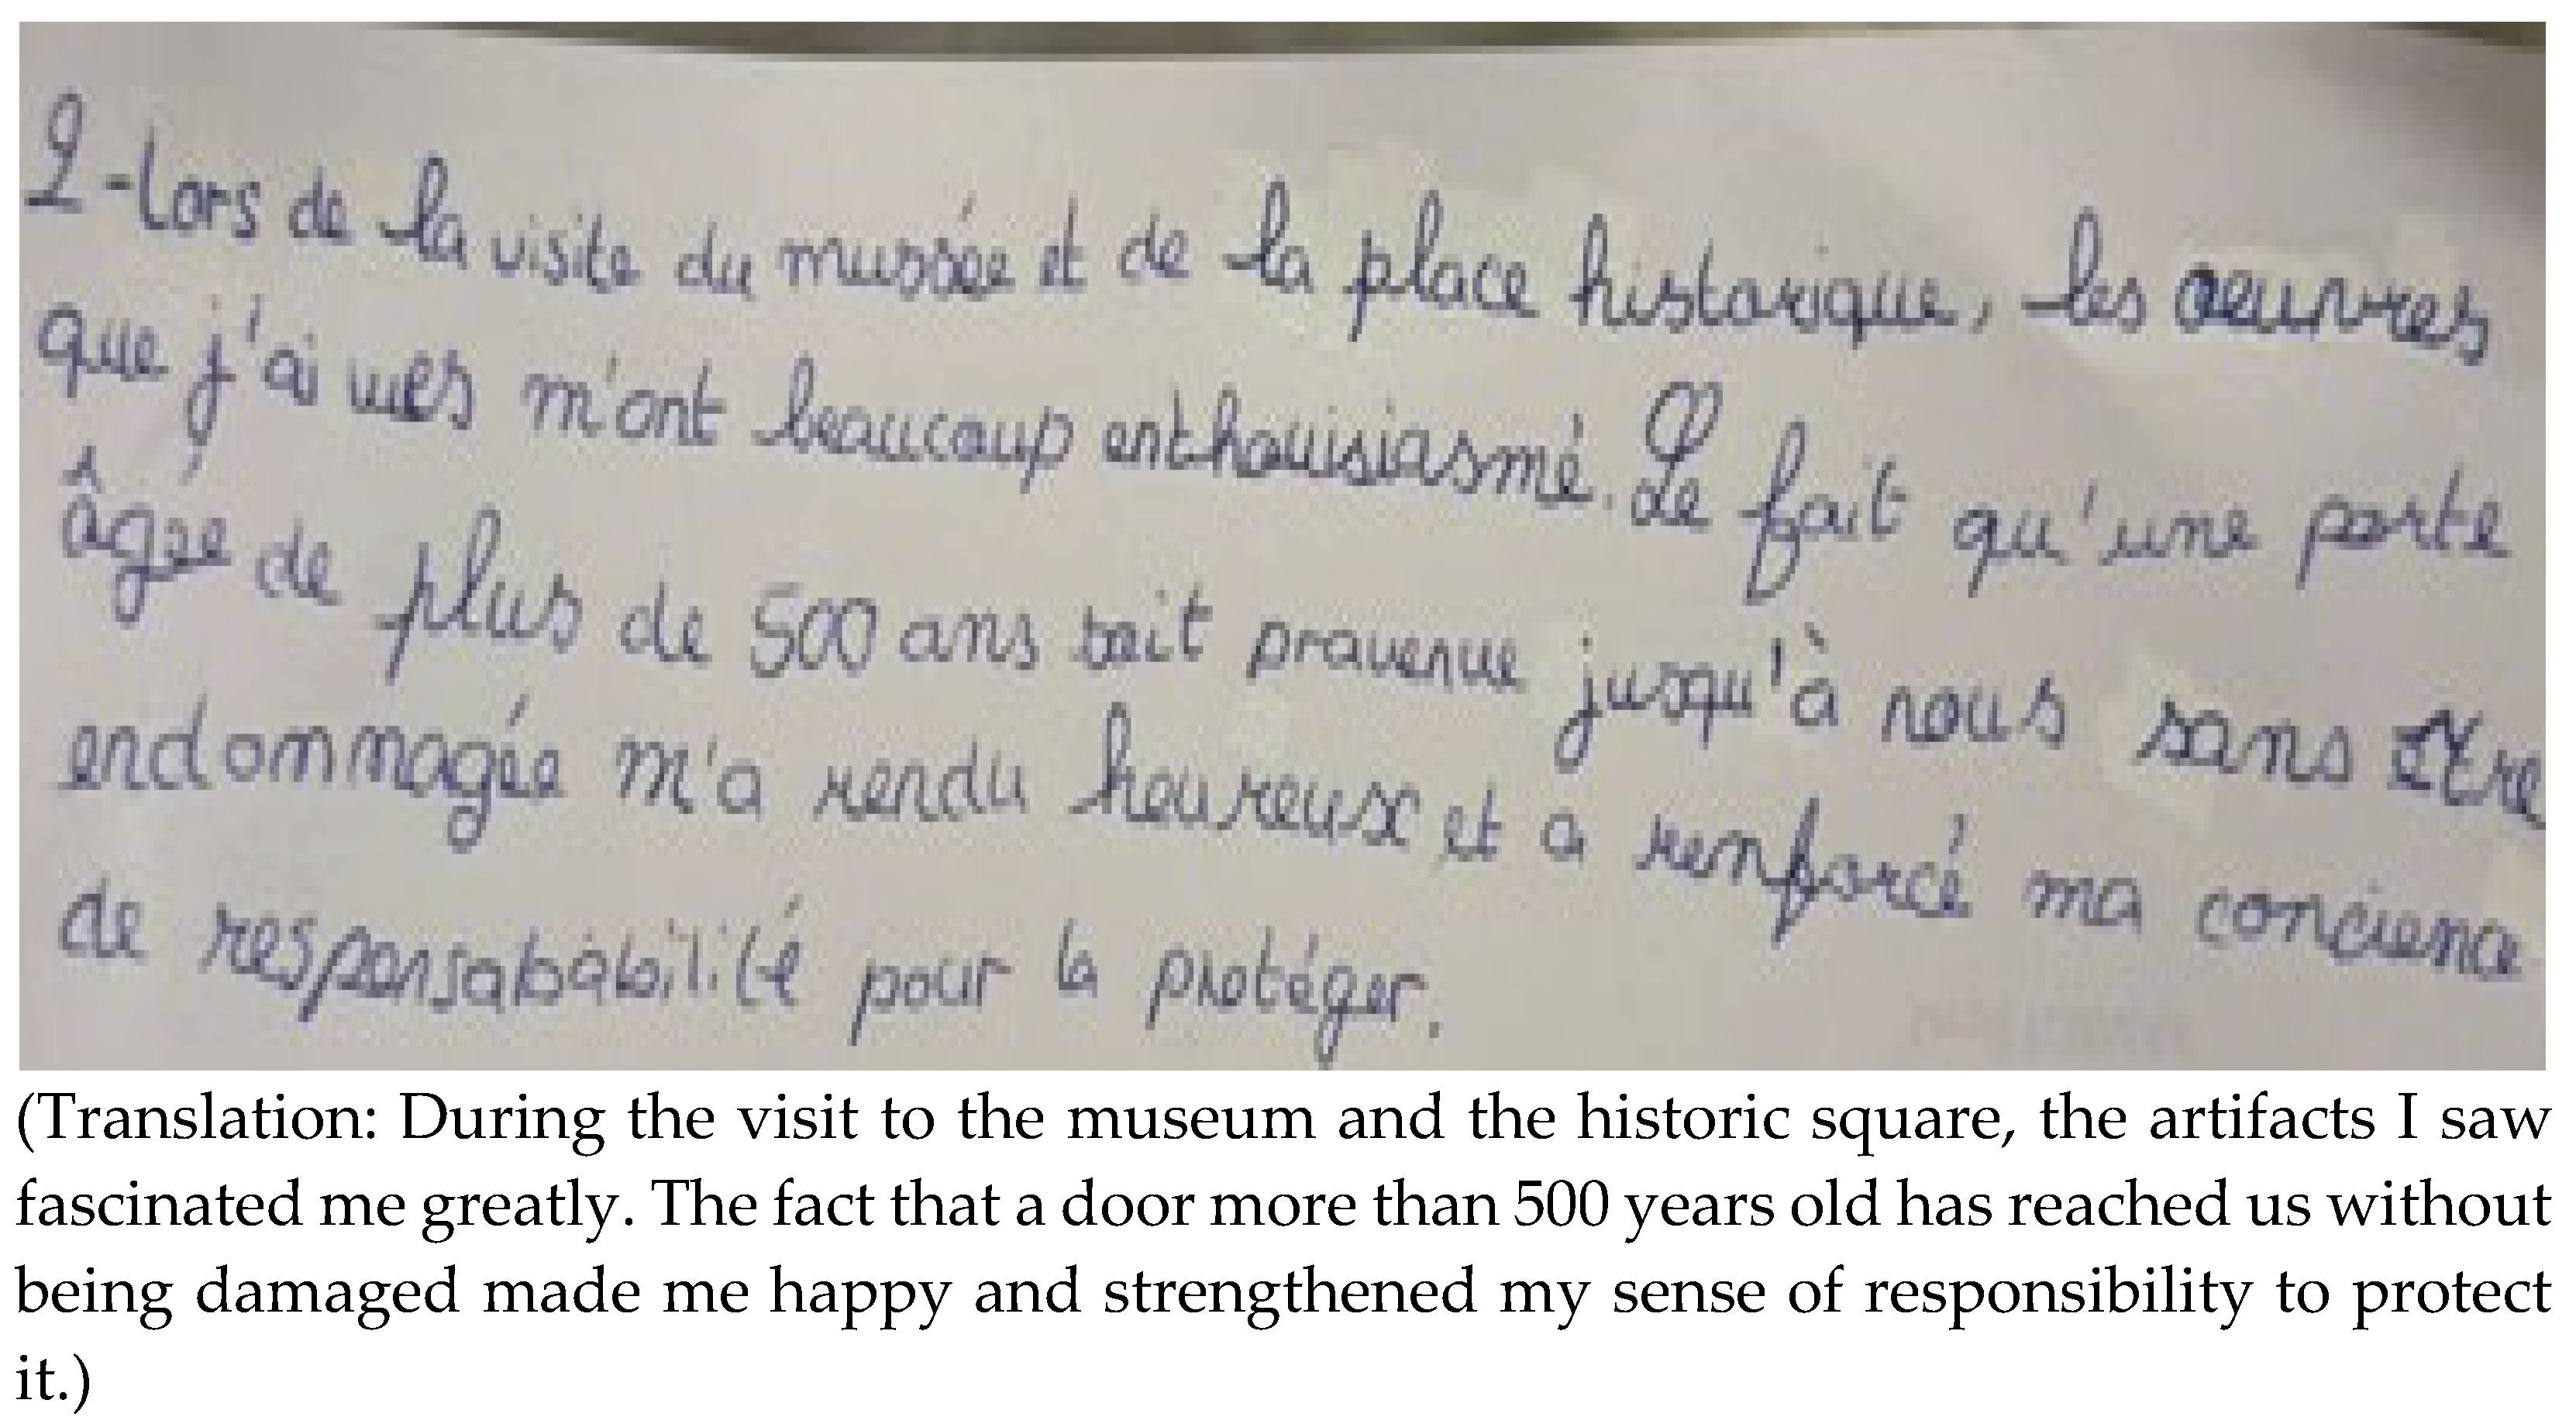 2-Lors de la visite du mussée et de la place historique, les œuvres
que j'ai vues m'ont beaucoup enthouisiasmé. Le fait qu'une porte
âgée de plus de 500 ans soit pravenue jusqu'à nous sans être
endommagée m'a rendu heureux et a renforcé ma concience
de responsabability pour la protéger.
(Translation: During the visit to the museum and the historic square, the artifacts I saw
fascinated me greatly. The fact that a door more than 500 years old has reached us without
being damaged made me happy and strengthened my sense of responsibility to protect
it.)